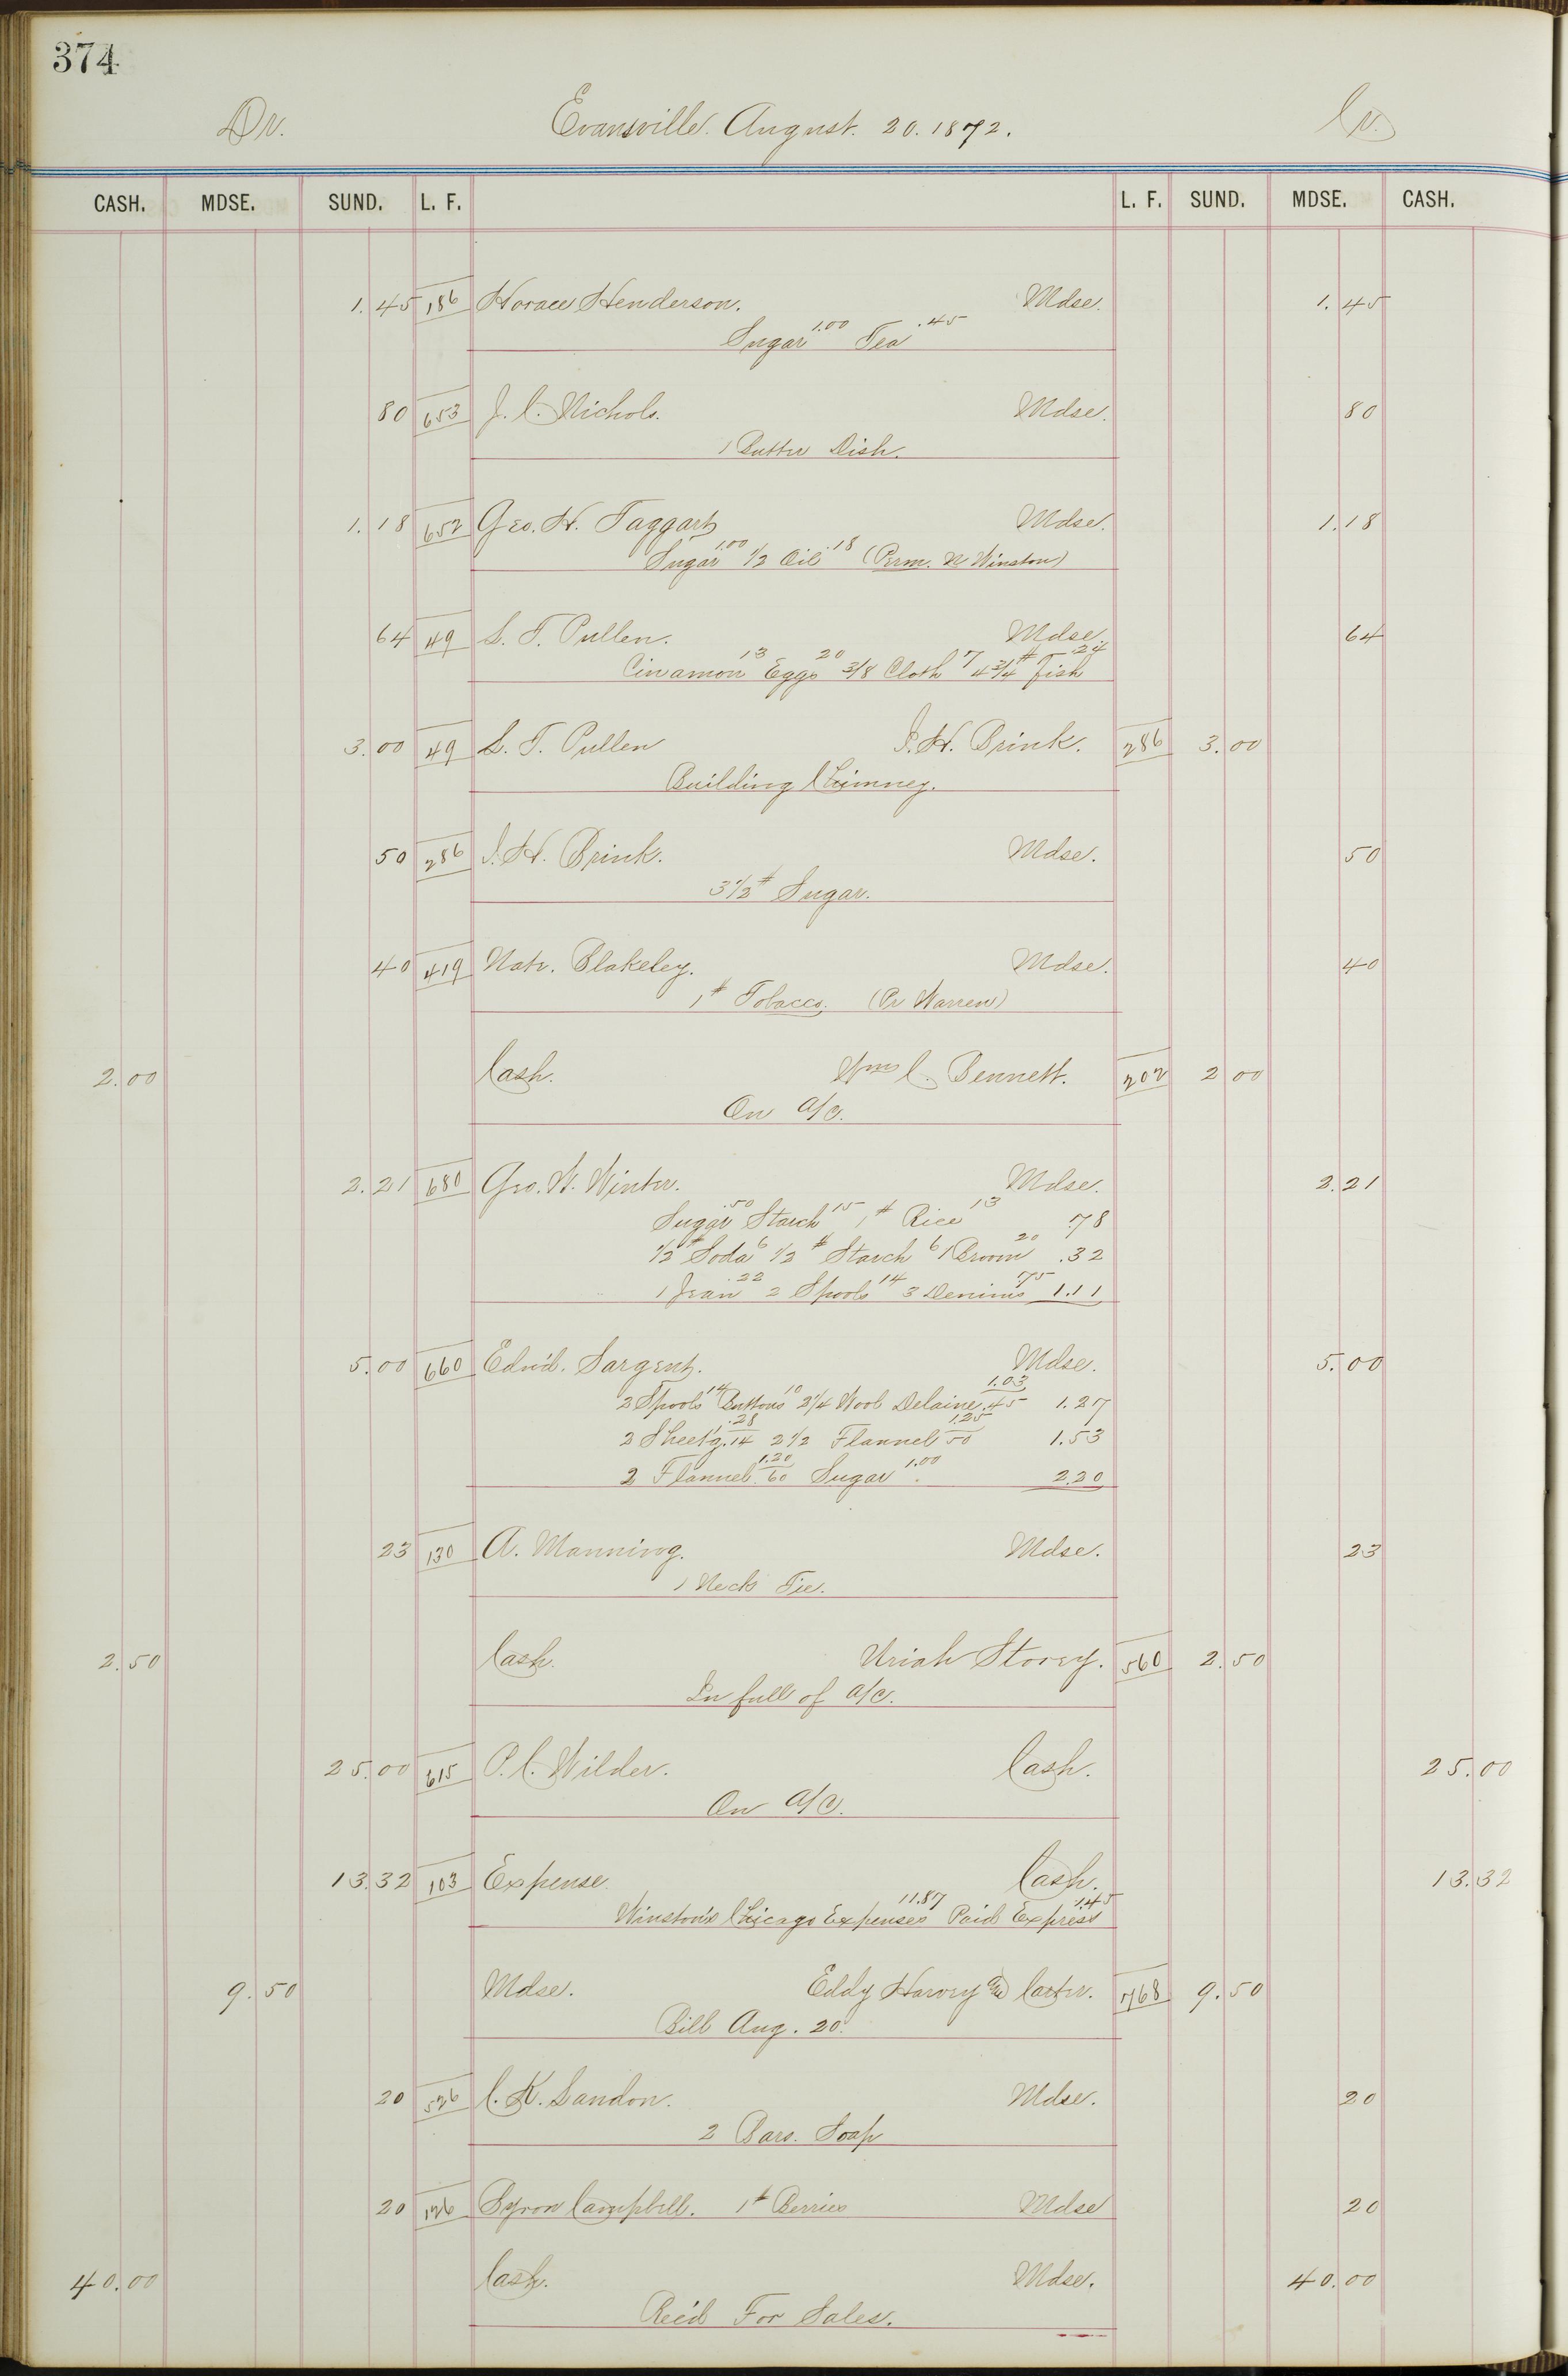 374
Dr. Evansville. August. 20. 1872. Cr.
CASH. MDSE. SUND. L. F. L. F. SUND. MDSE. CASH.
1.45 186 Horace Henderson. Mdse. 1.45
Sugar 1.00 Tea .45
80 653 J. C. Nichols. Mdse. 80
1 Butter Dish.
1.18 652 Geo. H. Taggart Mdse. 1.18
Sugar 1.00 1/2 Oil .18 (Perm. N Winston)
64 49 L. T. Pullen. Mdse. 64
Cinamon 13 Eggs 20 3/8 Cloth 7 4 3/4 # Fish .24
3.00 49 L. T. Pullen I. H. Brink. 286 3.00
Building Chimney.
50 286 I. H. Brink. Mdse. 50
3 1/2 # Sugar.
40 419 Natr. Blakeley. Mdse. 40
1 # Tobacco. (Pr Warren)
2.00 Cash. Wm C. Bennett. 202 2 00
On a/c.
2.21 680 Geo. W. Winter. Mdse. 2.21
Sugar .50 Starch 15 1 # Rice 13 .78
1/2 # Soda 6 1/2 # Starch 6 1 Broom 20 .32
1 Jean .22 2 Spools 14 3 Denims .75 1.11
5.00 660 Edw'd. Sargent. Mdse. 5.00
2 Spools 14 Buttons 10 2 1/4 Wool Delaine .45 1.03 1.27
2 Sheet'g. 14 .28 2 1/2 Flannel 50 1.25 1.53
2 Flannel. 60 1.20 Sugar 1.00 2.20
23 130 A. Manning. Mdse. 23
1 Neck Tie.
2.50 Cash. Uriah Storey. 560 2.50
In full of a/c.
25.00 615 P. C. Wilder. Cash. 25.00
On a/c.
13.32 103 Expense Cash. 13.32
Winston's Chicago Expenses 11.87 Paid Express 1.45
9.50 Mdse. Eddy Harvey & Carter. 768 9.50
Bill Aug. 20.
20 526 C. K. Landon. Mdse. 20
2 Bars. Soap
20 126 Byron Campbell. 1 # Berries Mdse 20
40.00 Cash. Mdse. 40.00
Rec'd For Sales.